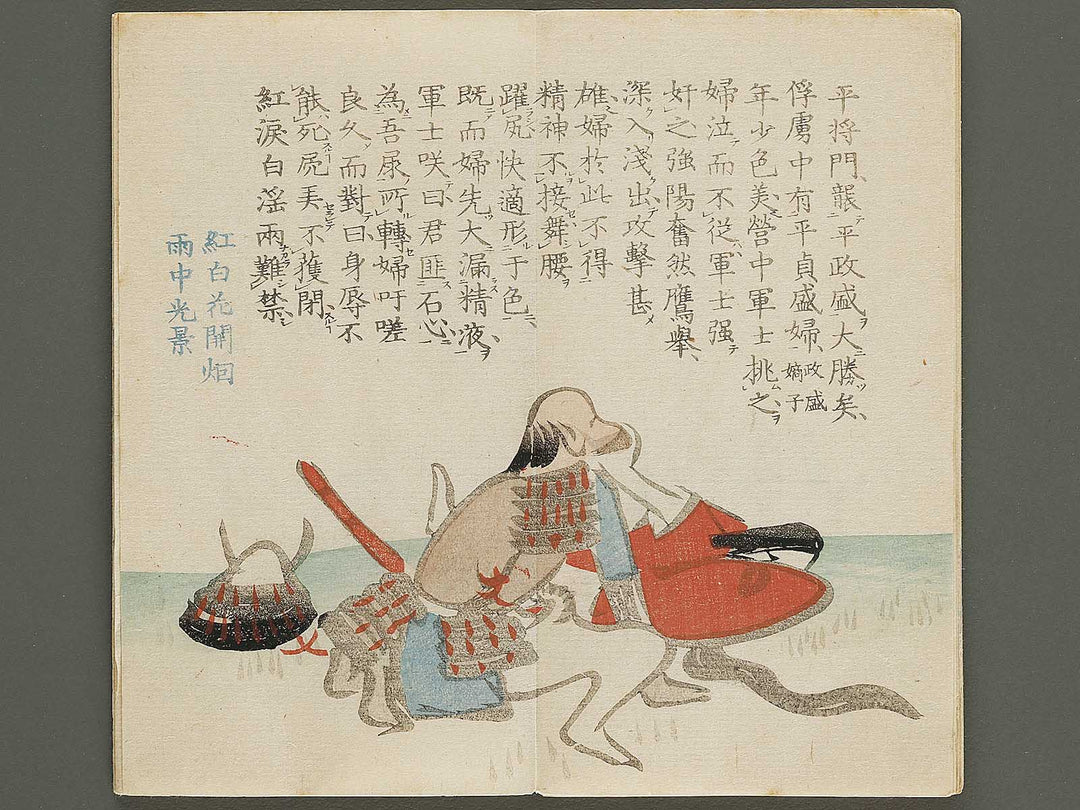 平将門、襲平政盛大勝矣、
俘虜中有平貞盛婦、政盛嫡子
年少色美、營中軍士挑之、
婦泣而不從、軍士强
奸之強陽奮然鷹擧、
深入淺出攻擊甚
雄、婦於此不得
精神不接、舞腰
躍尻快適形于色、
既而婦先大漏精液、
軍士咲曰君匪石心、
為吾尿所轉婦吁嗟
良久而對曰、身辱不
能死、屍弄不獲閉、
紅淚白淫兩難禁
紅白花開烟
雨中光景